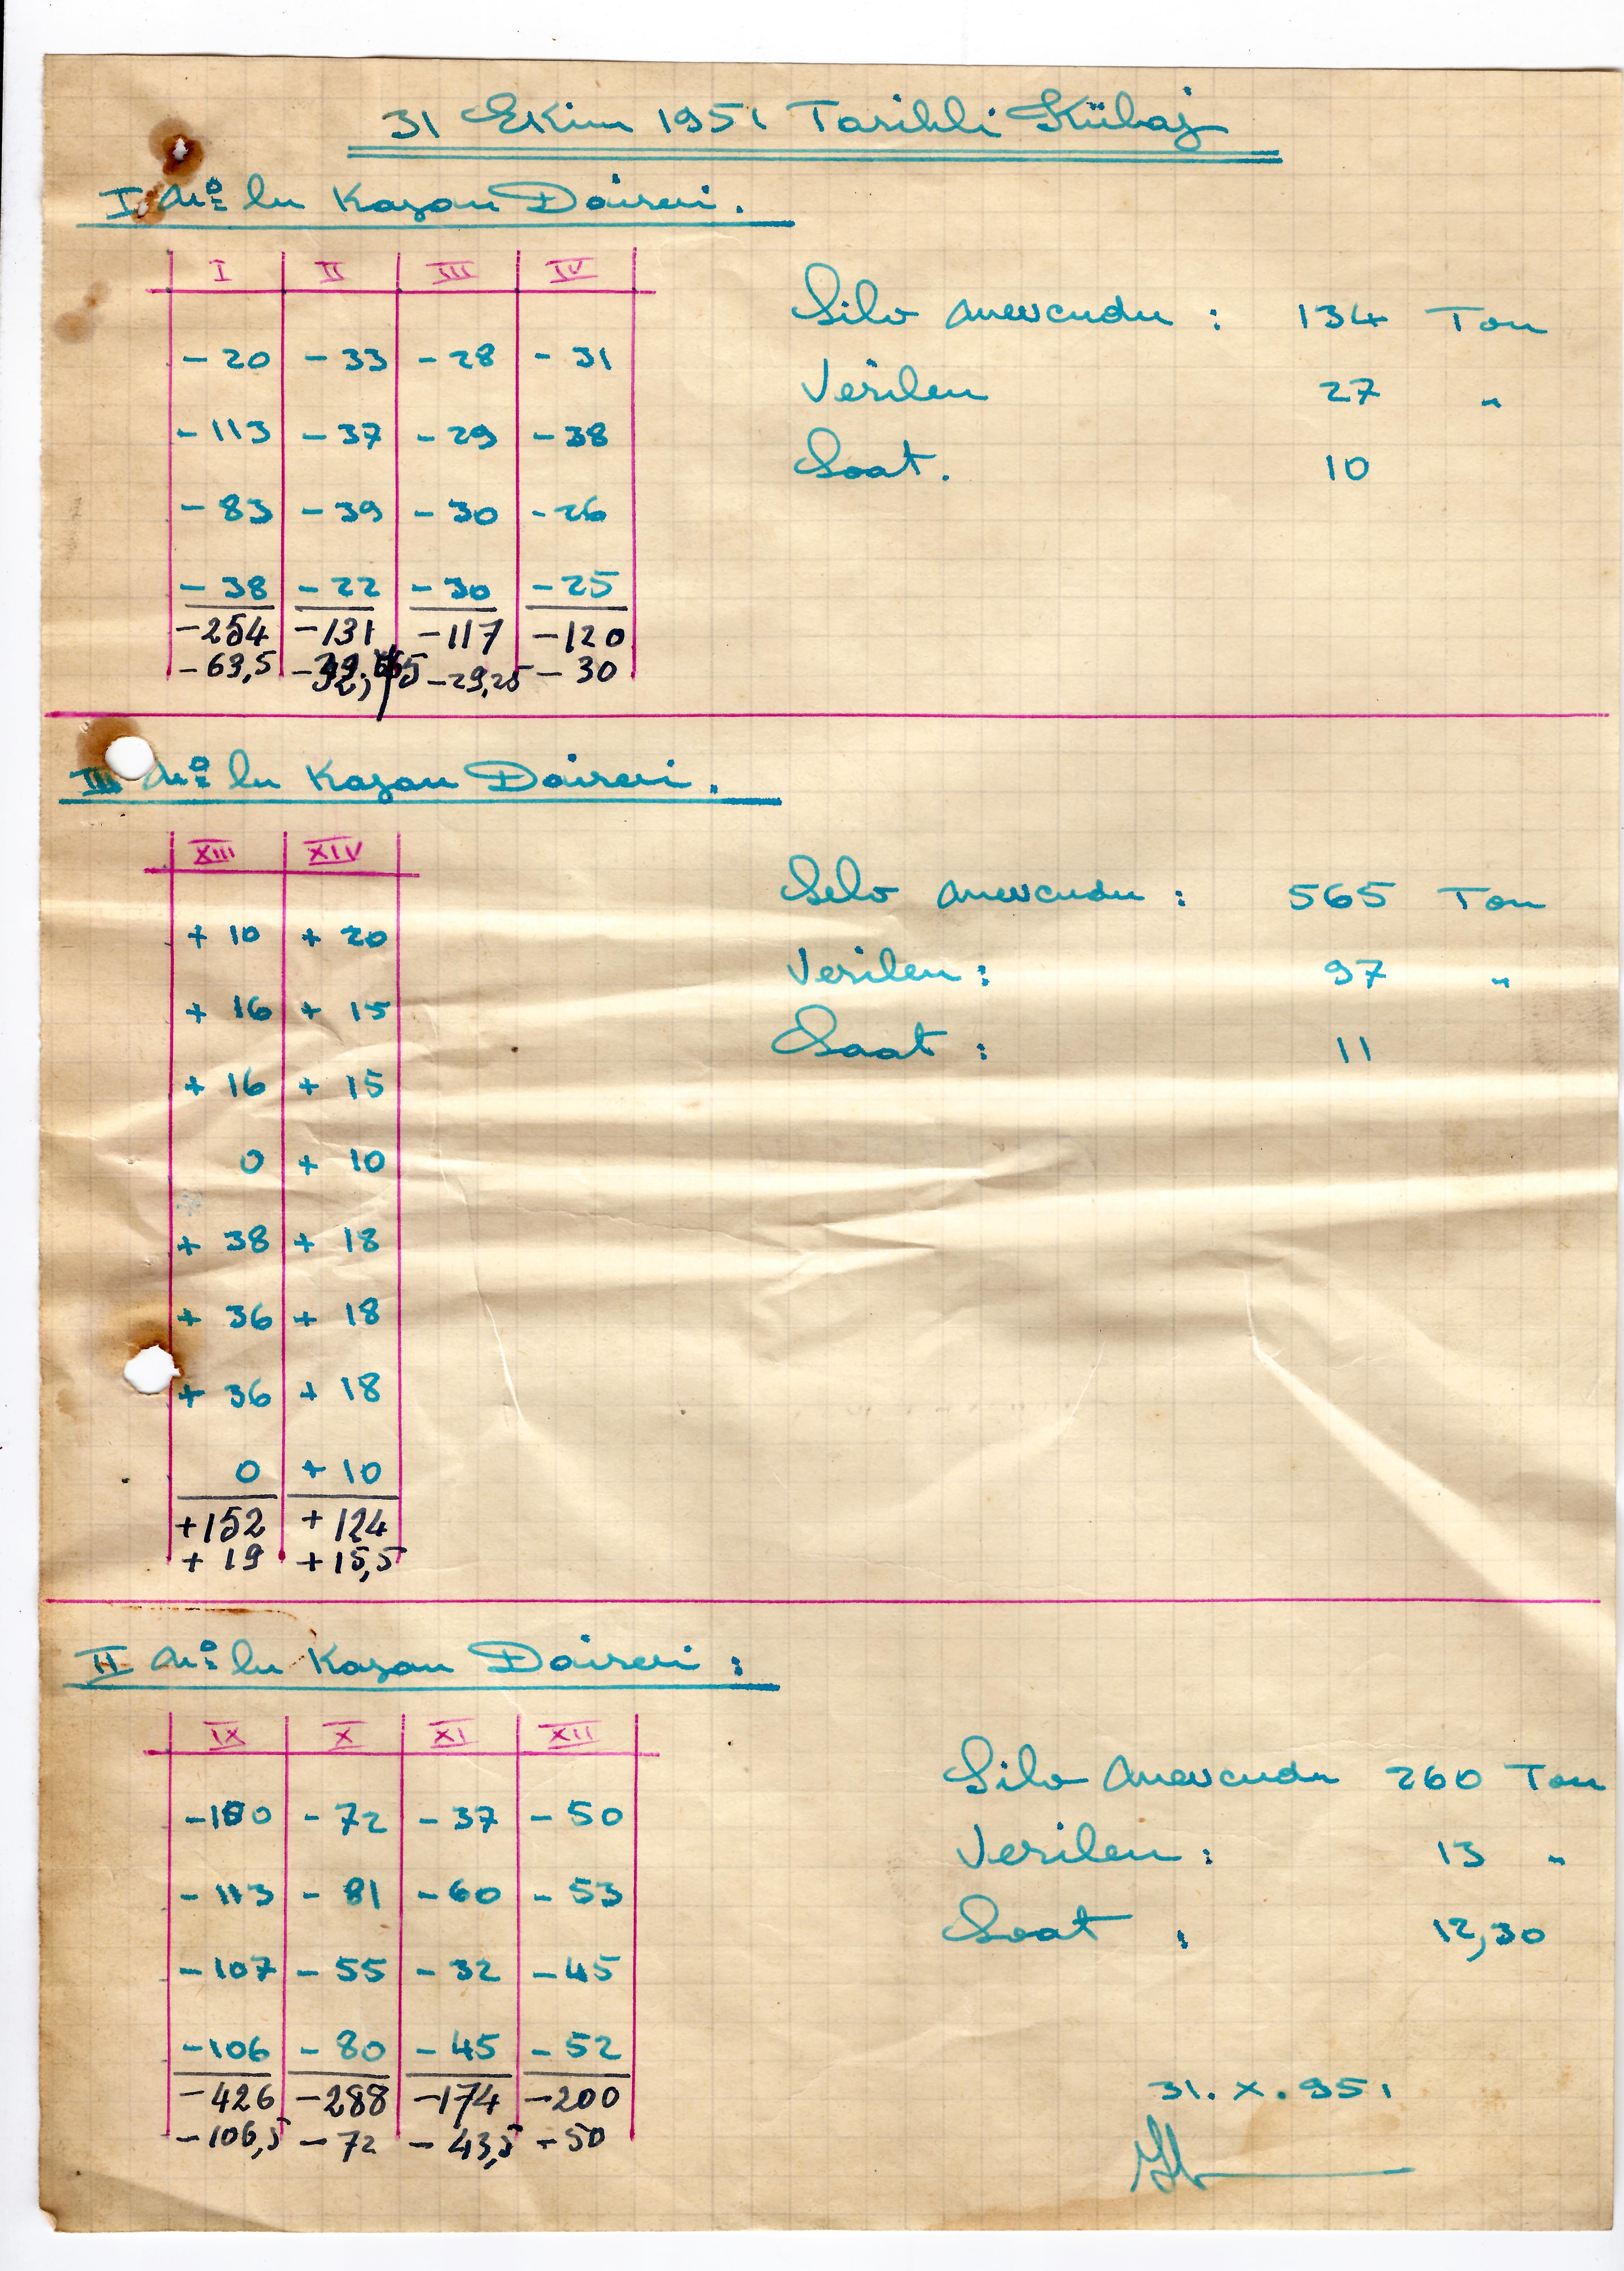 31 Ekim 1951 Tarihli Kübaj
I No lu Kazan Dairesi.
I II III IV
-20 -33 -28 -31
-113 -37 -29 -38
-83 -39 -30 -26
-38 -22 -30 -25
-254 -131 -117 -120
-63,5 -29,25 -30
Silo mevcudu : 134 Ton
Verilen 27 "
Saat. 10
III No lu Kazan Dairesi.
XIII XIV
+ 10 + 20
+ 16 + 15
+ 16 + 15
0 + 10
+ 38 + 18
+ 36 + 18
+ 36 + 18
0 + 10
+152 + 124
+ 19 + 15,5
Silo mevcudu : 565 Ton
Verilen : 97 "
Saat : 11
II No lu Kazan Dairesi :
IX X XI XII
-100 -72 -37 -50
-113 -81 -60 -53
-107 -55 -32 -45
-106 -80 -45 -52
-426 -288 -174 -200
-106,5 -72 -43,5 -50
Silo mevcudu 260 Ton
Verilen : 13 "
Saat : 12,30
31. X. 951